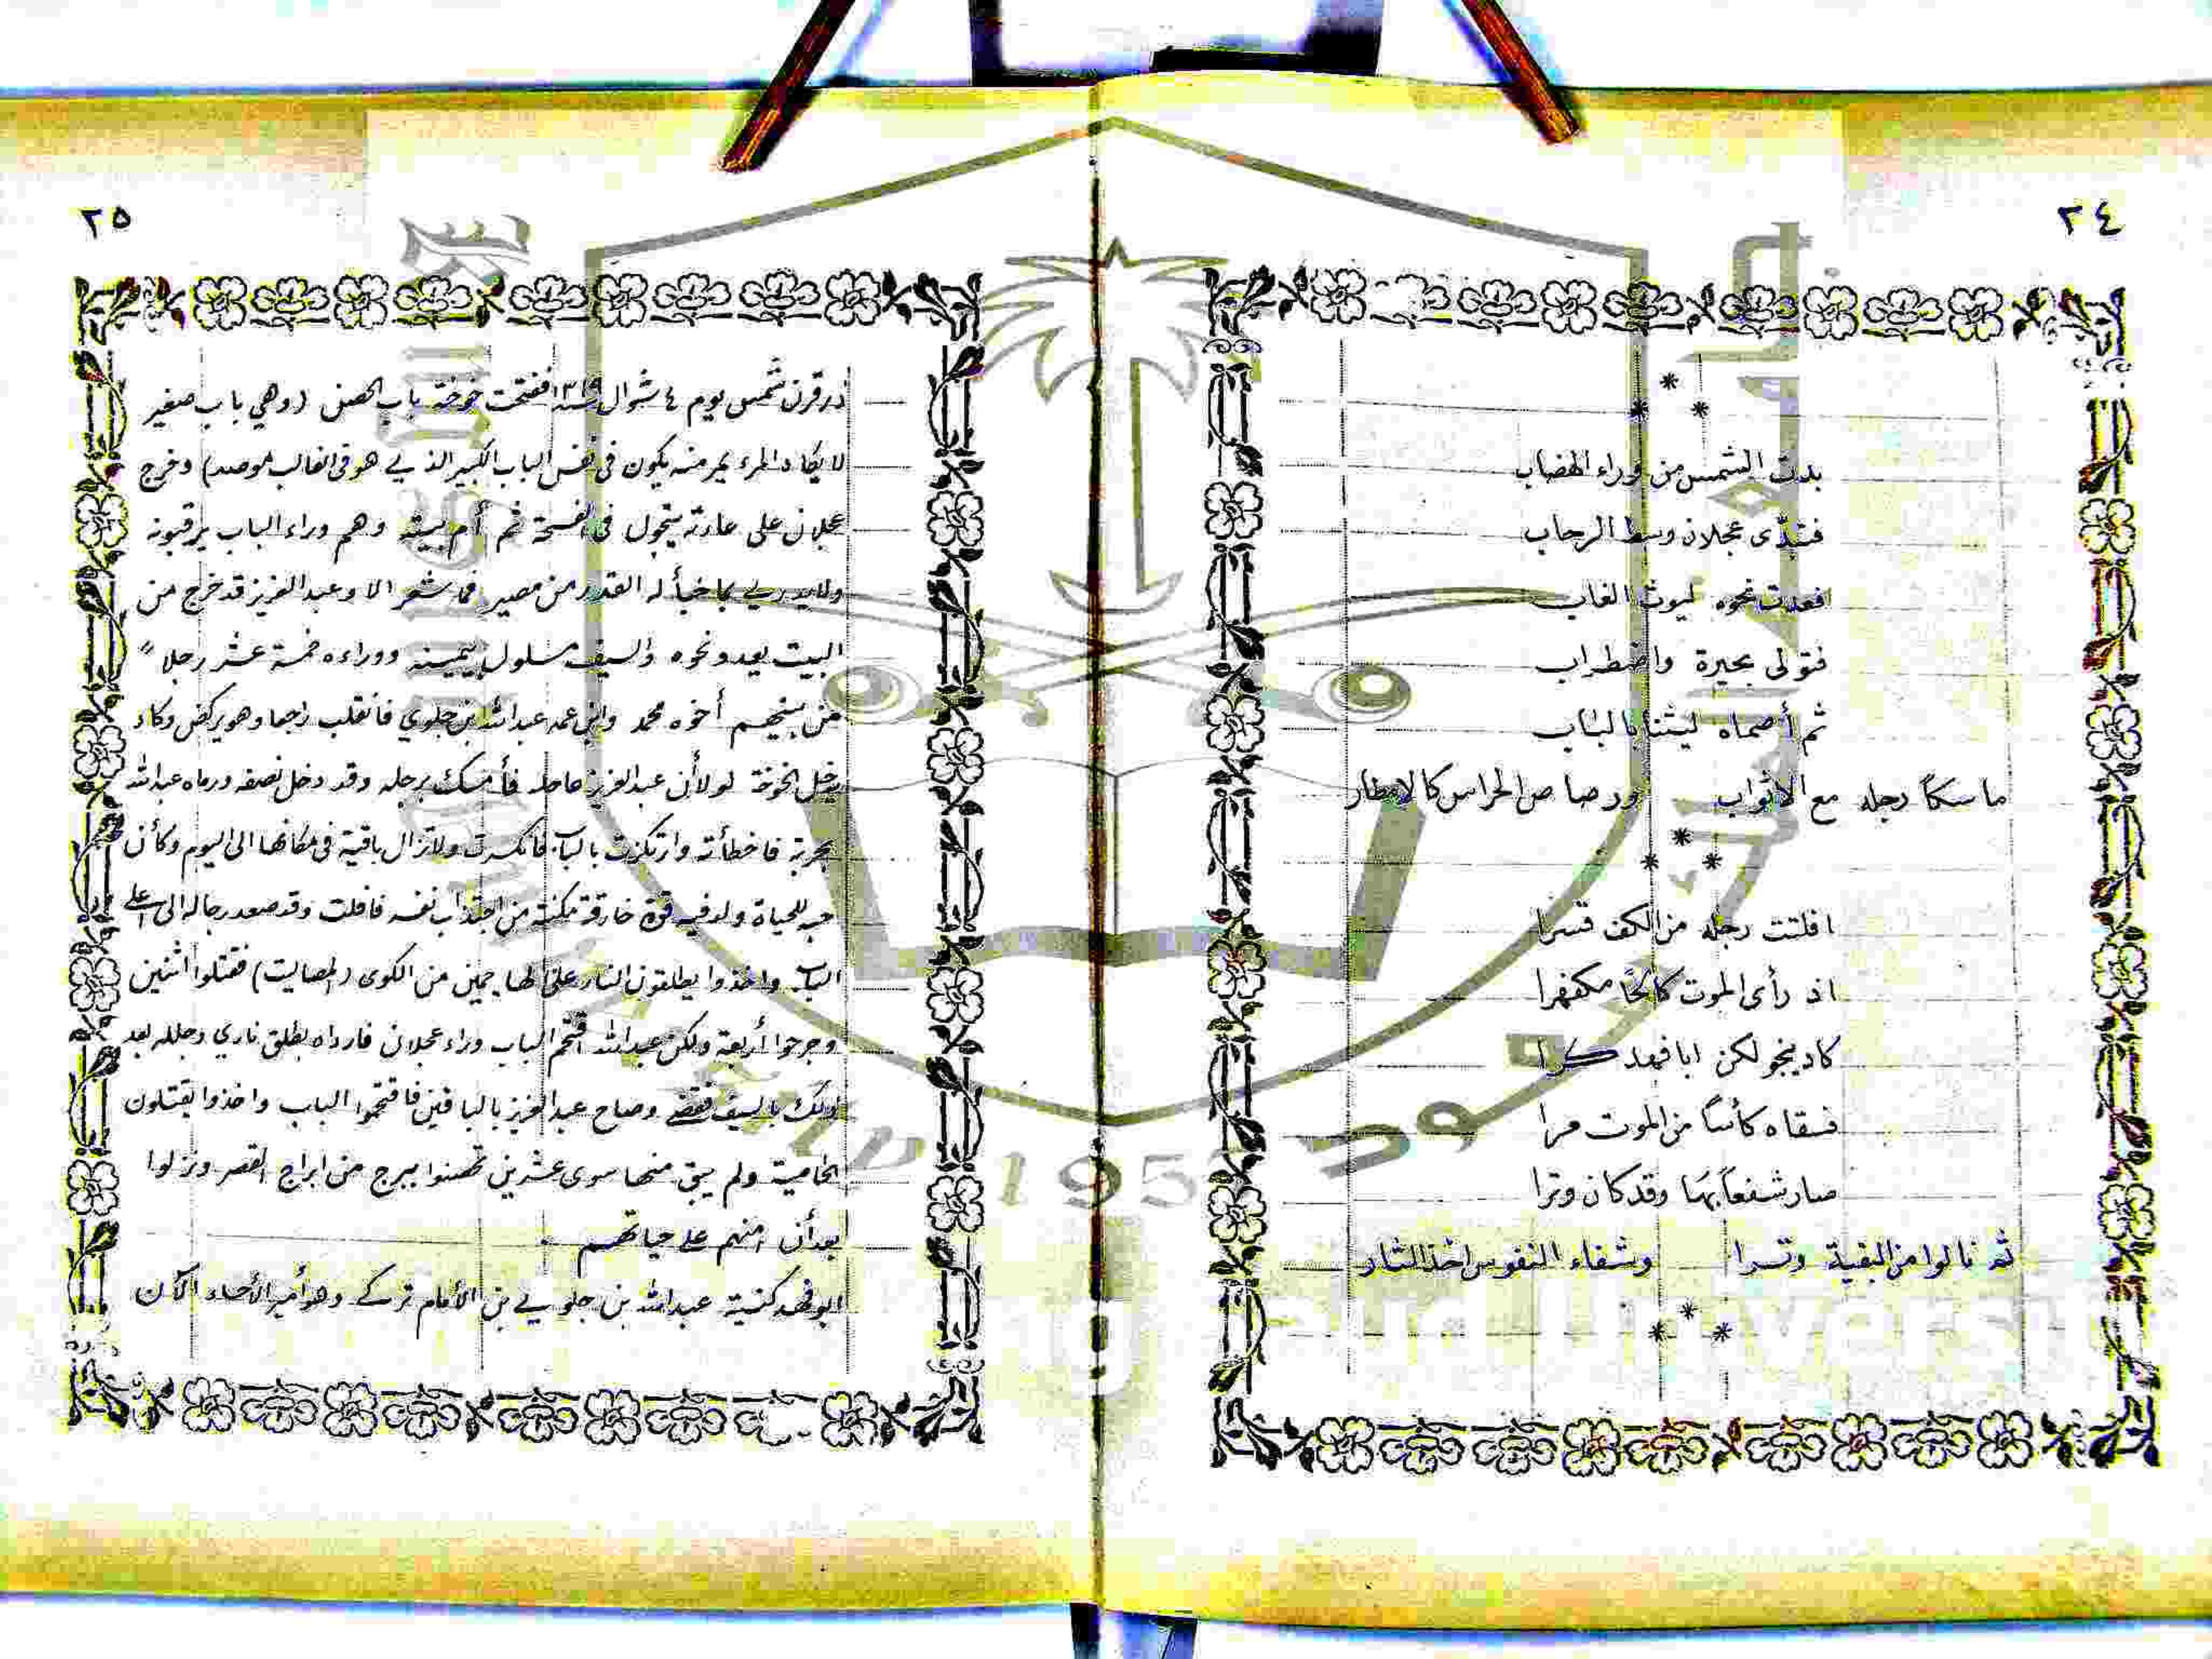 ٢٤
* * *
بدت الشمس من وراء الهضاب
فتبدّى عجلان وسط الرحاب
فعدت نحوه ليوث الغاب
فتولى بحيرة واضطراب
ثم أصماه ليثنا بالباب
ماسكاً رجله مع الاثواب ورصاص الحراس كالامطار
* * *
افلتت رجله من الكف قسرا
اذ رأى الموت كالحاً مكفهرا
كاد ينجو لكن ابا فهد كرا
فسقاه كأساً من الموت مرا
صار شفعاً بها وقد كان وترا
ثم نالوا من البقية وترا وشفاء النفوس اخذ الثار
* * *
٢٥
ذر قرن شمس يوم ٤ شوال سنة ١٣١٩ ففتحت خوخة باب الحصن (وهي باب صغير
لا يكاد المرء يمر منه يكون في نفس الباب الكبير الذي هو في الغالب موصد) وخرج
عجلان على عادته يتجول في الفسحة ثم أم بيته وهم وراء الباب يرقبونه
ولا يدري بما خبأ له القدر من مصير فما شعر الا وعبد العزيز قد خرج من
البيت يعدو نحوه والسيف مسلول بيمينه ووراءه خمسة عشر رجلاً
من بينهم أخوه محمد وابن عمه عبدالله بن جلوي فانقلب راجعا وهو يركض وكاد
يدخل الخوخة لولا أن عبد العزيز عاجله فأمسك برجله وقد دخل نصفه ورماه عبدالله
بحربة فاخطأته وارتكزت بالباب فانكسرت ولا تزال باقية في مكانها الى اليوم وكأن
حبه للحياة ولد فيه قوة خارقة مكنته من اجتذاب نفسه فافلت وقد صعد رجاله الى اعلى
الباب واخذوا يطلقون النار على المهاجمين من الكوى (المصاليت) فقتلوا اثنين
وجرحوا أربعة ولكن عبدالله اقتحم الباب وراء عجلان فارداه بطلق ناري وجلله بعد
ذلك بالسيف فقضى وصاح عبد العزيز بالباقين فاقتحموا الباب واخذوا يقتلون
الحامية ولم يبق منها سوى عشرين تحصنوا ببرج من ابراج القصر ونزلوا
بعد أن امنهم على حياتهم .
ابو فهد كنية عبدالله بن جلوي بن الأمام تركي وهو أمير الأحساء الآن